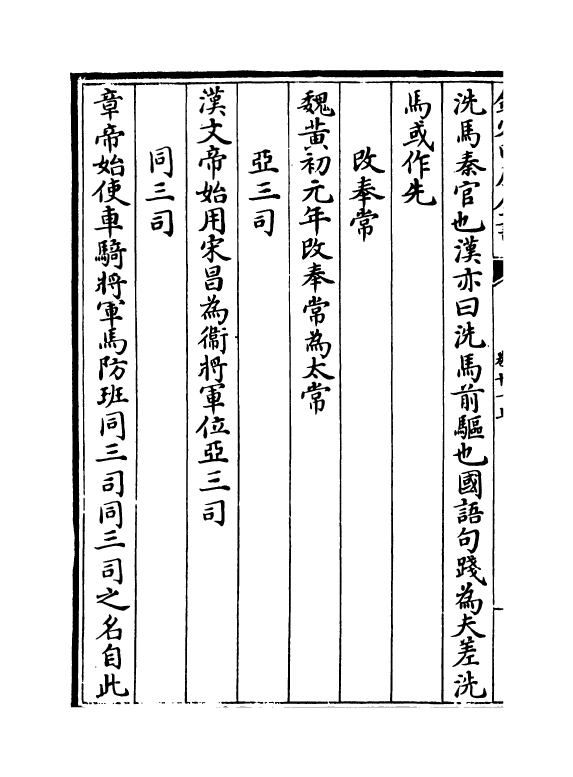 洗馬秦官也漢亦曰洗馬前驅也國語句踐為夫差洗
馬或作先
改奉常
魏黄初元年改奉常為太常
亞三司
漢文帝始用宋昌為衞將軍位亞三司
同三司
章帝始使車騎將軍馬防班同三司同三司之名自此